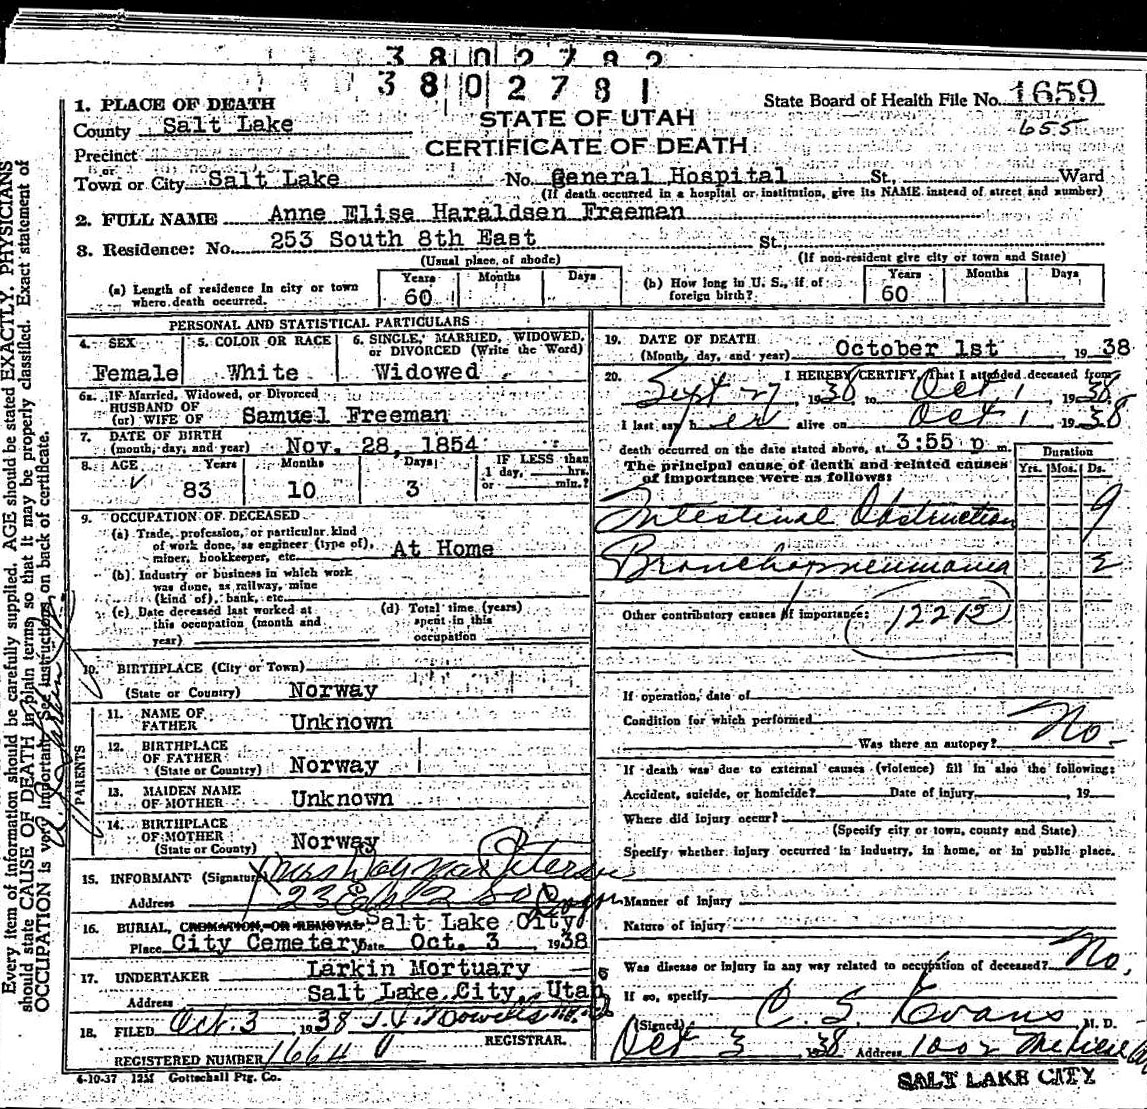 3802782
3802781
State Board of Health File No. 1659
655
1. PLACE OF DEATH
STATE OF UTAH
County Salt Lake
CERTIFICATE OF DEATH
Precinct
or
Town or City Salt Lake No. General Hospital St., Ward
(If death occurred in a hospital or institution, give its NAME instead of street and number)
2. FULL NAME Anne Elise Haraldsen Freeman
3. Residence: No. 253 South 8th East St.
(Usual place of abode)
(If non-resident give city or town and State)
(a) Length of residence in city or town where death occurred. Years 60 Months Days
(b) How long in U. S., if of foreign birth? Years 60 Months Days
PERSONAL AND STATISTICAL PARTICULARS
4. SEX Female
5. COLOR OR RACE White
6. SINGLE, MARRIED, WIDOWED, or DIVORCED (Write the Word) Widowed
6a. IF Married, Widowed, or Divorced
HUSBAND OF
(or) WIFE OF Samuel Freeman
7. DATE OF BIRTH
(month, day, and year) Nov. 28, 1854
8. AGE Years 83 Months 10 Days 3 IF LESS than 1 day, hrs. or min.?
9. OCCUPATION OF DECEASED
(a) Trade, profession, or particular kind
of work done, as engineer (type of),
miner, bookkeeper, etc. At Home
(b) Industry or business in which work
was done, as railway, mine
(kind of), bank, etc.
(c) Date deceased last worked at
this occupation (month and
year)
(d) Total time (years)
spent in this
occupation
10. BIRTHPLACE (City or Town)
(State or Country) Norway
PARENTS
11. NAME OF
FATHER Unknown
12. BIRTHPLACE
OF FATHER
(State or Country) Norway
13. MAIDEN NAME
OF MOTHER Unknown
14. BIRTHPLACE
OF MOTHER
(State or Country) Norway
15. INFORMANT (Signature) Mrs Dagmar Peterson
Address
16. BURIAL, CREMATION, OR REMOVAL Salt Lake City
Place City Cemetery Date Oct. 3 1938
17. UNDERTAKER Larkin Mortuary
Address Salt Lake City, Utah
18. FILED Oct. 3, 1938
REGISTRAR.
REGISTERED NUMBER 1664
4-10-37 12M Gottschall Ptg. Co.
19. DATE OF DEATH
(Month, day, and year) October 1st 1938
20. I HEREBY CERTIFY, That I attended deceased from
Sept 27, 1938 to Oct 1, 1938
I last saw her alive on Oct 1 1938
death occurred on the date stated above, at 3:55 p m.
The principal cause of death and related causes
of importance were as follows:
Duration
Yrs. Mos. Ds.
Intestinal Obstruction 9
Bronchopneumonia 2
Other contributory causes of importance: 122B
If operation, date of
Condition for which performed
Was there an autopsy? No
If death was due to external causes (violence) fill in also the following:
Accident, suicide, or homicide? Date of injury, 19
Where did injury occur?
(Specify city or town, county and State)
Specify whether injury occurred in industry, in home, or in public place.
Manner of injury
Nature of injury
Was disease or injury in any way related to occupation of deceased? No.
If so, specify
(Signed) C. S. Evans M. D.
Oct 3 1938 Address 1002
SALT LAKE CITY
Every item of information should be carefully supplied. AGE should be stated EXACTLY. PHYSICIANS
should state CAUSE OF DEATH in plain terms, so that it may be properly classified. Exact statement of
OCCUPATION is very important. See instructions on back of certificate.